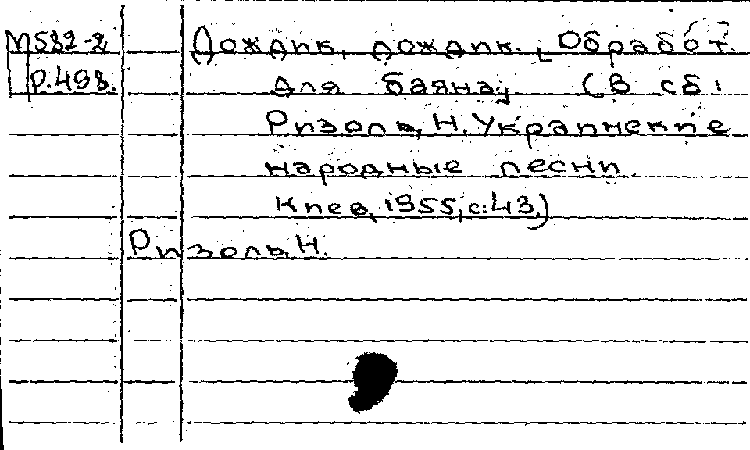 М532-2 Дождик, дождик. [Обработ.
Р.493. для баяна]. (В сб.:
Ризоль, Н. Украинские
народные песни.
Киев, 1955, с.43.)
Ризоль, Н.